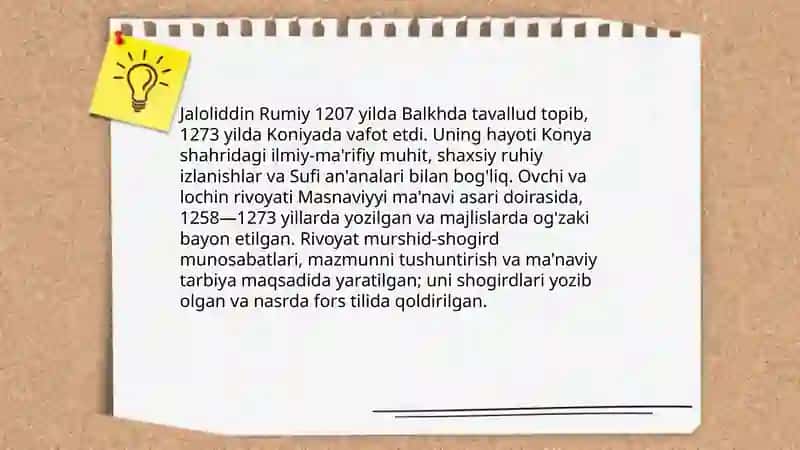 Jaloliddin Rumiy 1207 yilda Balkhda tavallud topib,
1273 yilda Koniyada vafot etdi. Uning hayoti Konya
shahridagi ilmiy-ma'rifiy muhit, shaxsiy ruhiy
izlanishlar va Sufi an'analari bilan bog'liq. Ovchi va
lochin rivoyati Masnaviyyi ma'navi asari doirasida,
1258—1273 yillarda yozilgan va majlislarda og'zaki
bayon etilgan. Rivoyat murshid-shogird
munosabatlari, mazmunni tushuntirish va ma'naviy
tarbiya maqsadida yaratilgan; uni shogirdlari yozib
olgan va nasrda fors tilida qoldirilgan.